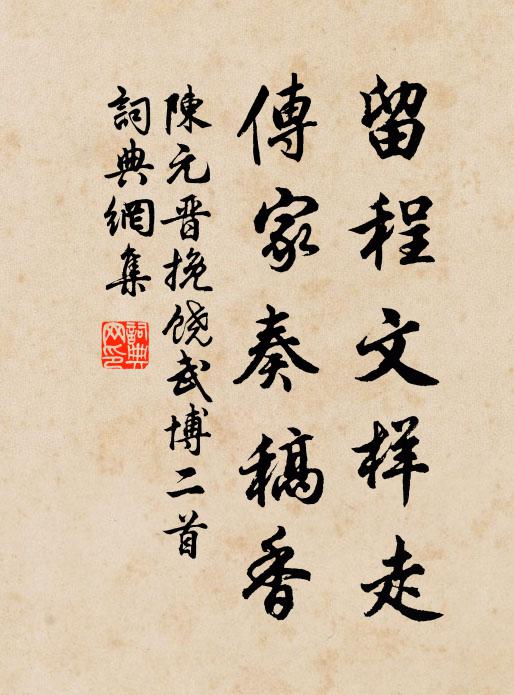 留程文样走
傳家奏稿香
陳元晋挽饶武博二首
詞典網集
詞典网印